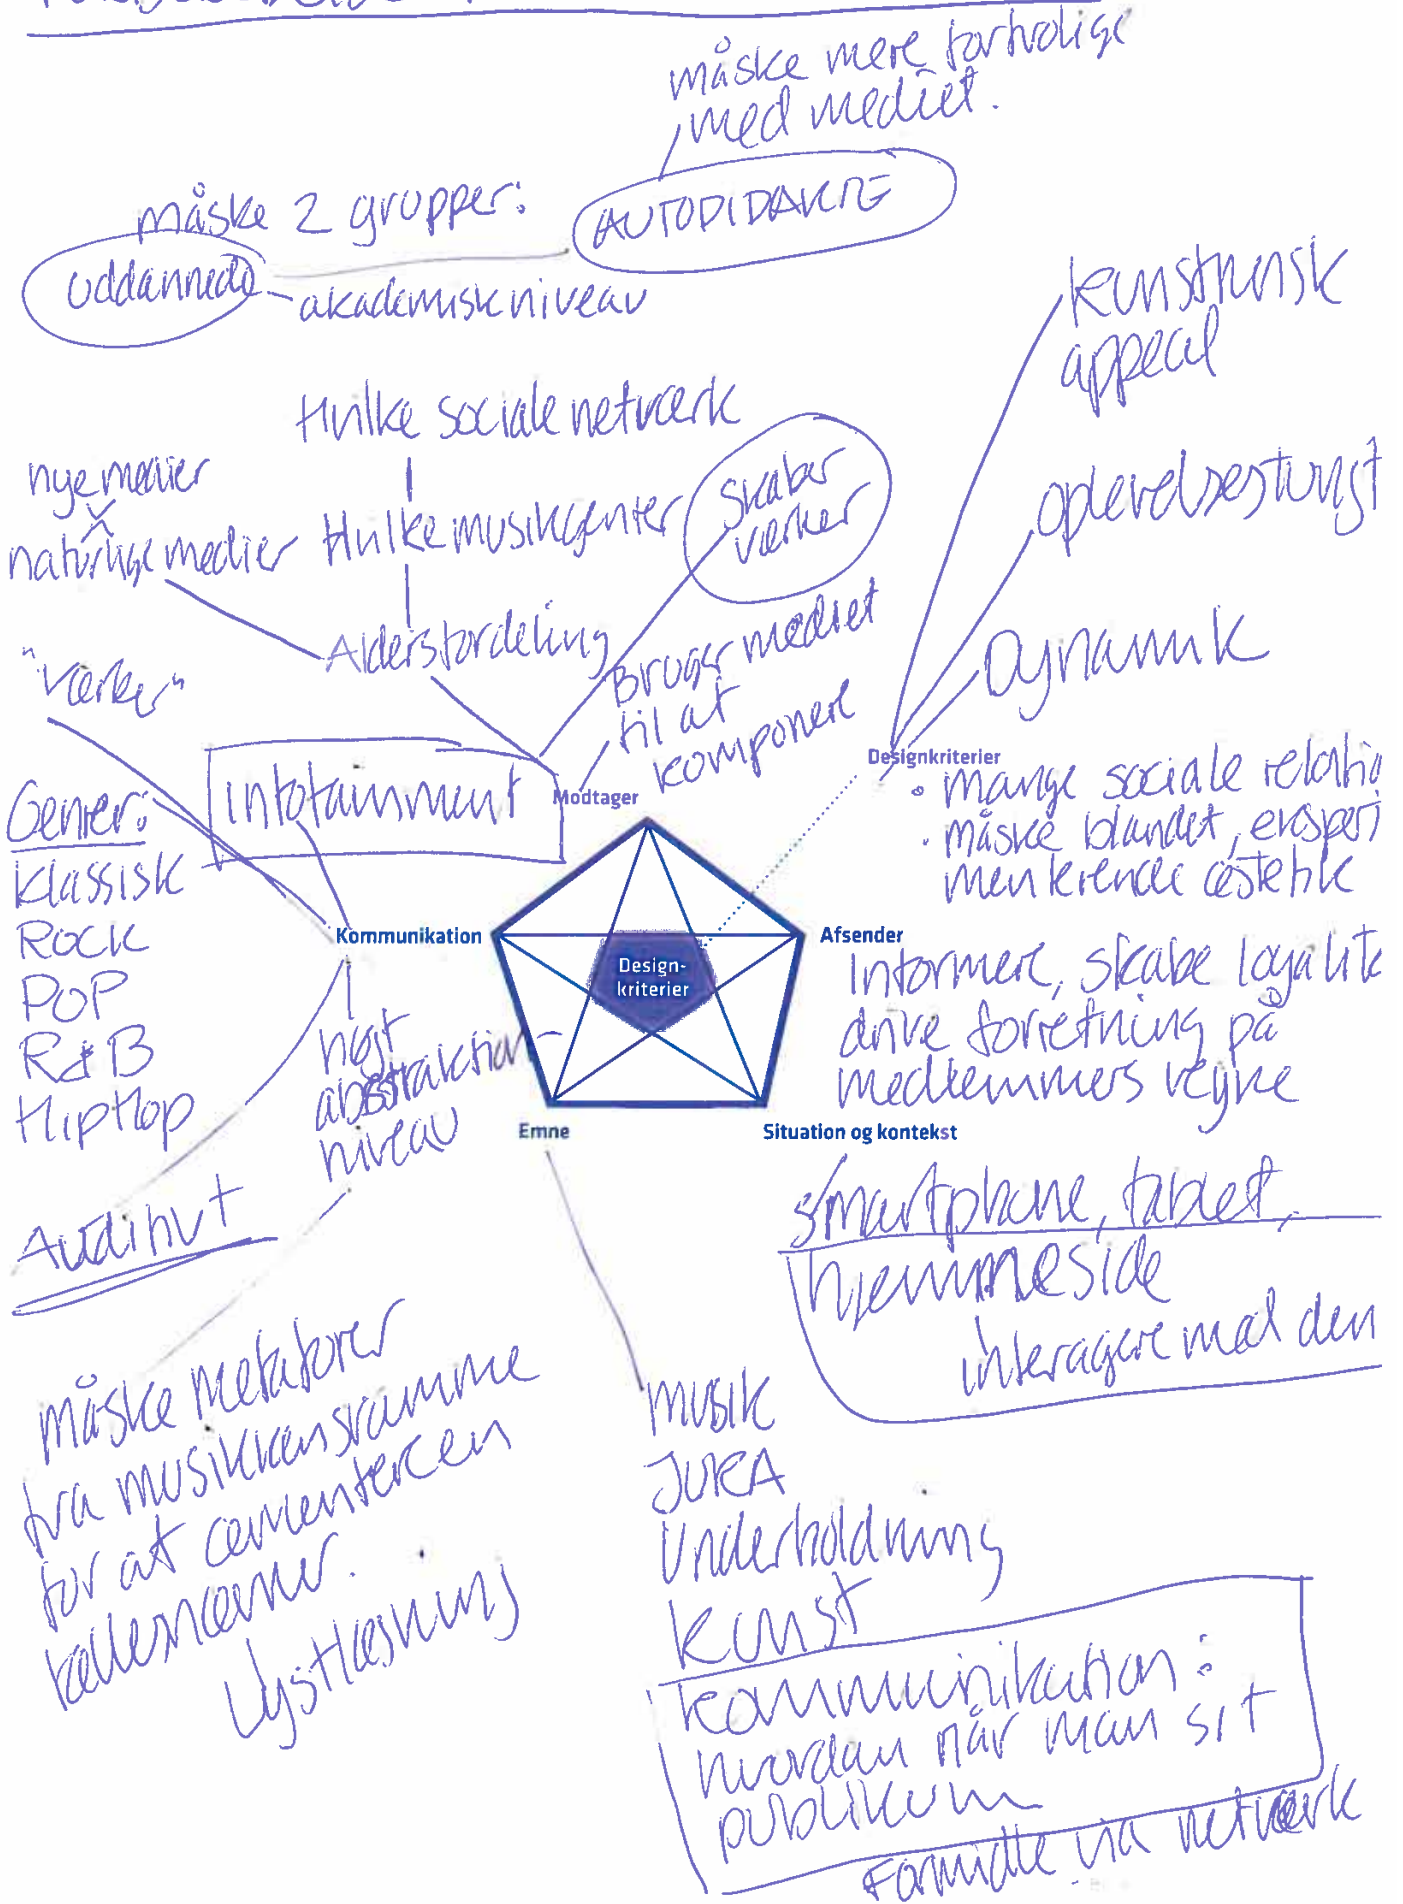 måske mere fortrolige
med mediet.
måske 2 grupper:
AUTODIDAKTE
Uddannede
akademisk niveau
kunstnerisk
appeal
Hvilke sociale netværk
nye medier
naturlige medier
Hvilke musikgenrer
skaber
værker
oplevelsestungt
Aldersfordeling
Bruger mediet
til at
komponere
Dynamik
"værker"
infotainment
Modtager
Designkriterier
• mange sociale relatio
• måske blandet, eksperi
menterende æstetik
Genrer:
Klassisk
ROCK
POP
R&B
HipHop
Kommunikation
Afsender
Design-
kriterier
Informere, skabe loyalite
drive forretning på
medlemmers vegne
højt
abstraktion-
niveau
Emne
Situation og kontekst
Auditivt
smartphone, tablet,
hjemmeside
interagere med den
måske metaforer
fra musikkens ramme
for at cementere en
fællesnævner.
Lystlæsning
MUSIK
JURA
Underholdning
Kunst
Kommunikation:
hvordan når man sit
publikum
Formidle via netværk